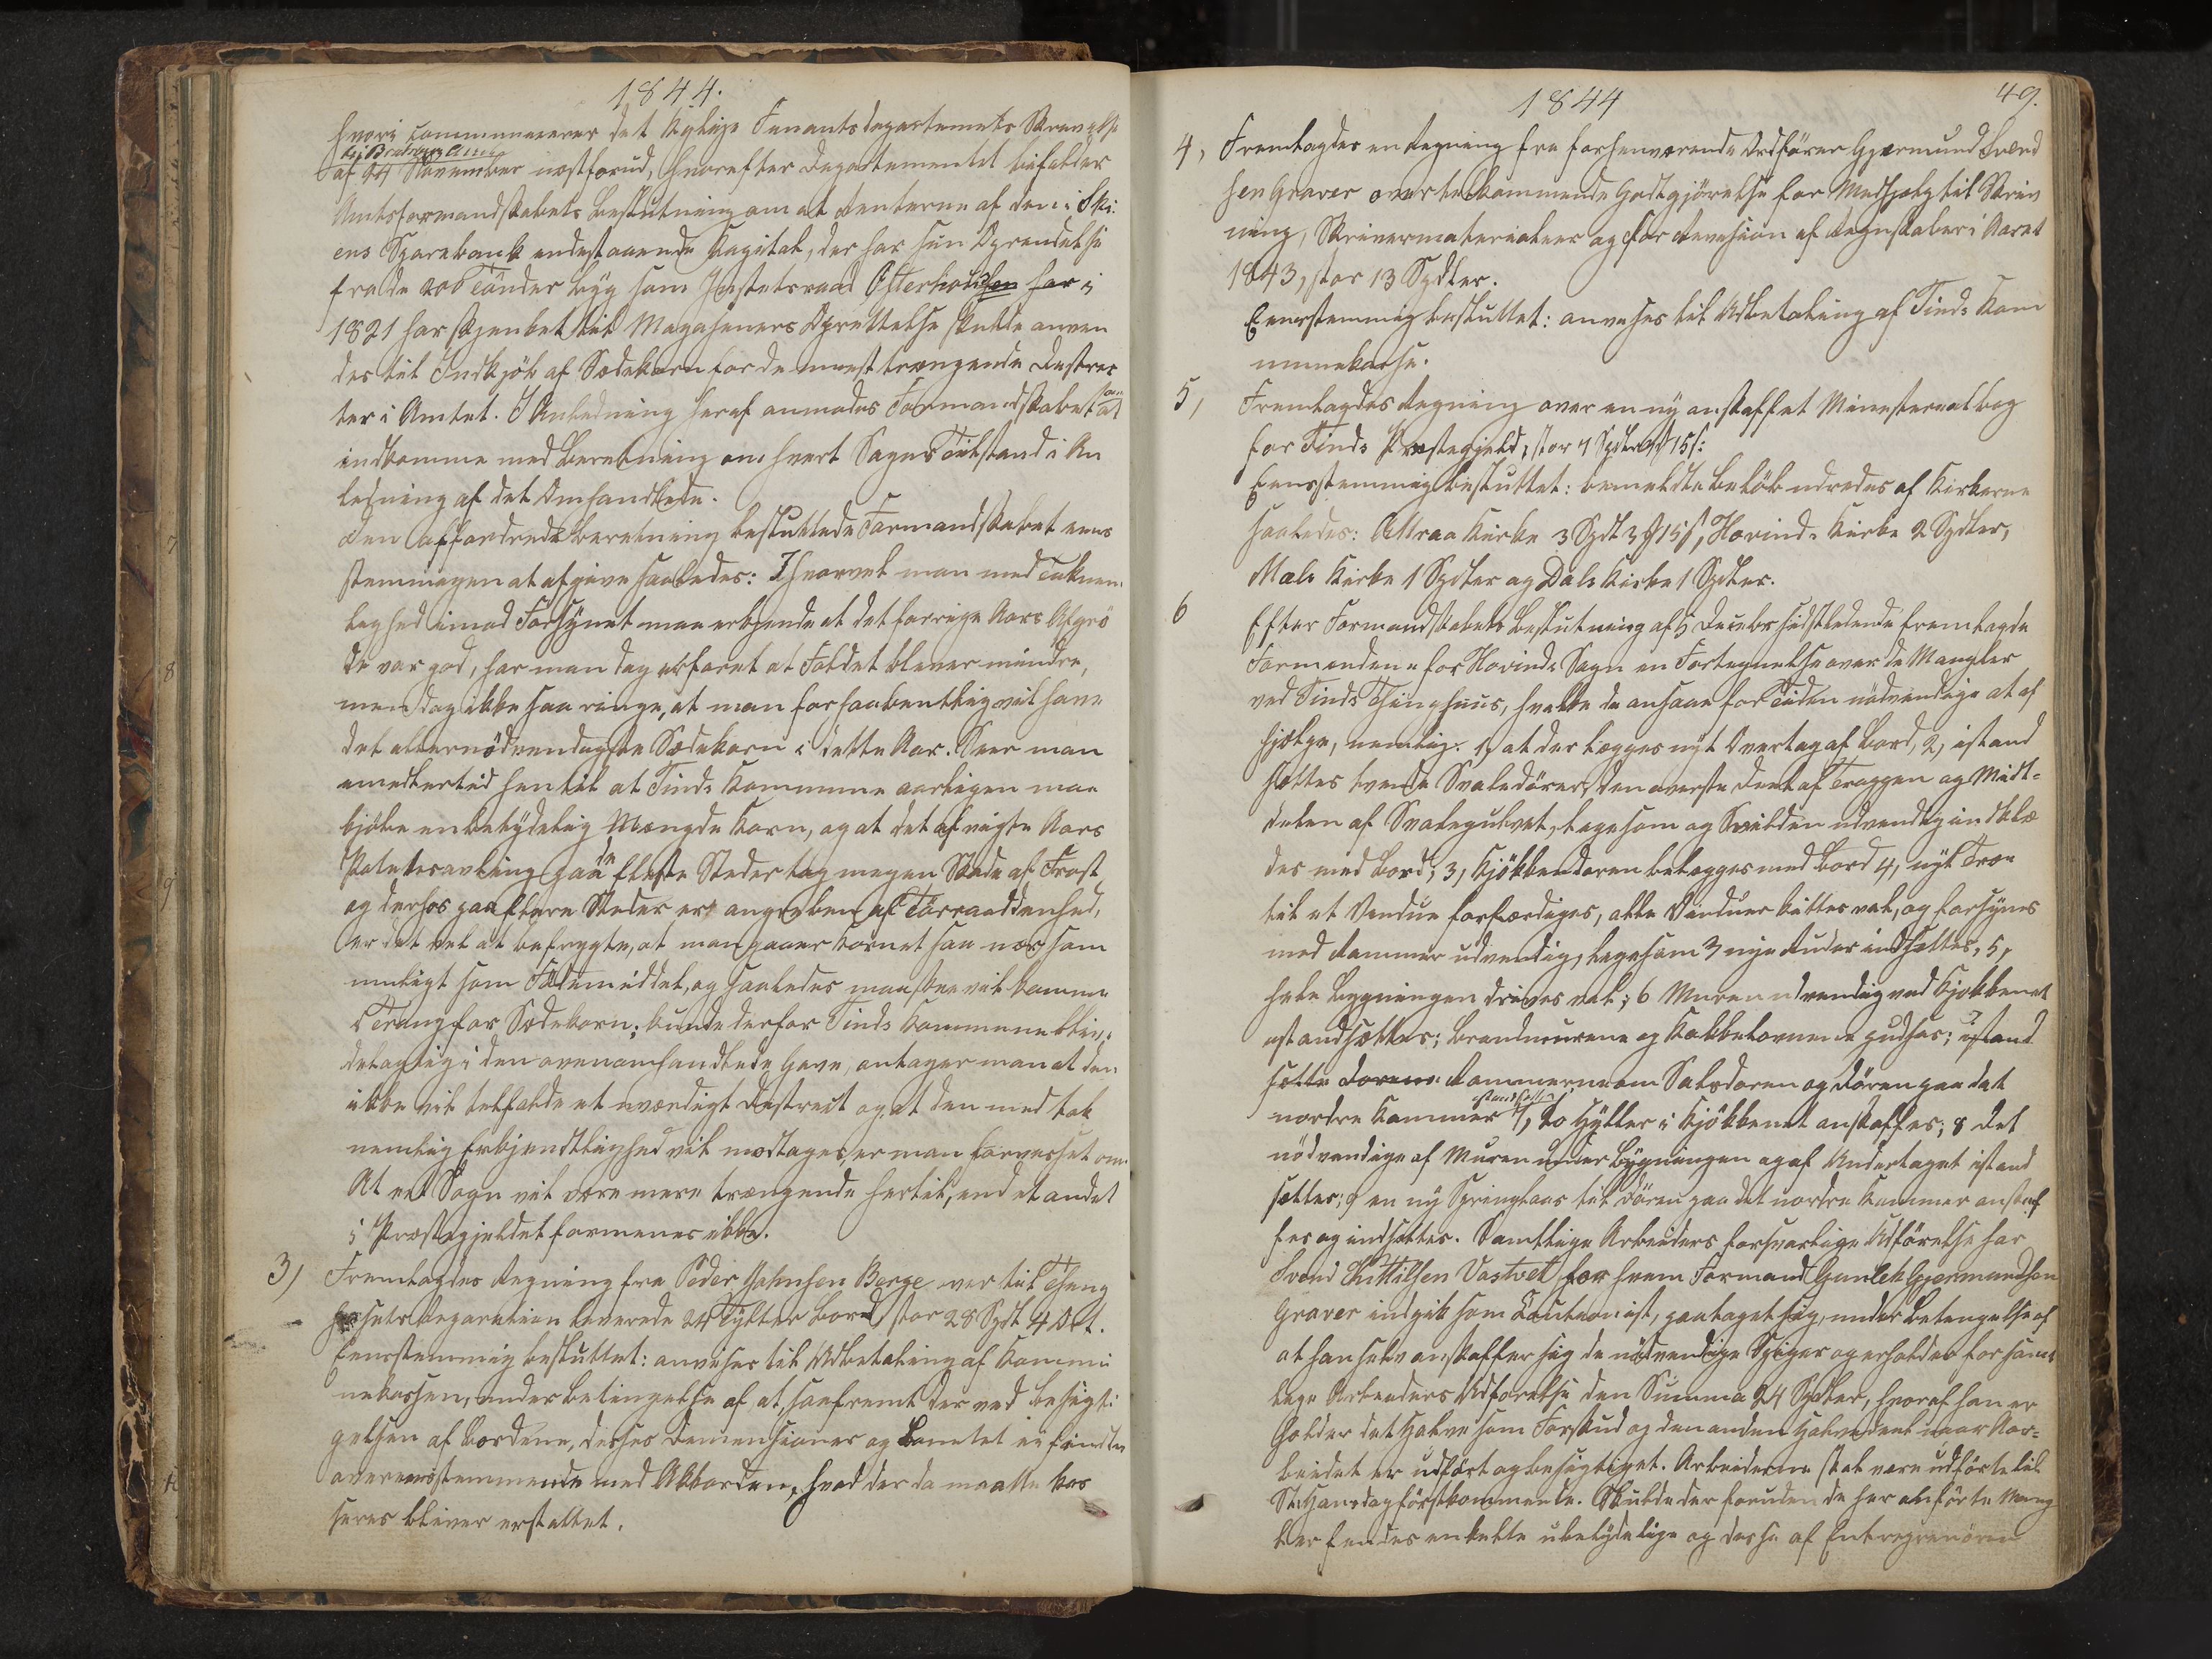 1844.
hvori communiceres det Kglige Finantsdepartements Skrivelse
til Bratsberg Amt
af 24 November næstforud, hvorefter Departementet bifalder
Amtsformandskabets Beslutning om at Renterne af den i Ski-
ens Sparebank indestaaende Kapital, der har sin Oprindelse
fra de 200 Tønder Byg som Justitsraad Ofterholdsen har i
1821 har skjenket til Magaziners Oprettelse skulde anven
des til Indkjøb af Sædekorn for de meest trængende Distric
ter i Amtet. I Anledning heraf anmodes Formandskabet om at
indkomme med Beretning om hvert Sogns Tilstand i An
ledning af det Omhandlede.
Den affordrede Beretning besluttede Formandskabet eens
stemmigen at afgive saaledes: Ihvorvel man med Taknem-
lighed imod Forsynet maa erkjende at det forrige Aars Afgrø
de var god, har man dog erfaret at Foldet bliver mindre,
men dog ikke saa ringe, at man forhaabentlig vil have
det allernødvendigste Sædekorn i dette Aar. Seer man
imidlertid hen til at Tinds Kommune aarligen maa
kjøbe en betydelig Mængde Korn, og at det afvigte Aars
Potetesavling paa de fleste Steder tog megen Skade af Frost
og derhos paa flere Steder er angreben af Tørraaddenhed,
er det vel at befrygte, at man paaer Kornet saa nær som
muligt som Fødemiddel, og saaledes maaskee vil komme
i Trang for Sædekorn; kunde derfor Tinds Kommune blive
delagtig i den ovenomhandlede Gave, antager man at den
ikke vil tilfalde et uværdigt District og at den med tak
nemlig Erkjendtlighed vil modtages, er man forvisset om.
At eet Sogn vil være mere trængende hertil, end et andet
i Præstegjeldet formenes ikke.
3) Fremlagdes Regning fra Peder Johnsen Berge over til Thing
husets Reparation leverede 24 Tylter Bord, stor 28 Spdl 4 Ort.
Eensstemmig besluttet: anvises til Udbetaling af Kommu
nekassen, under Betingelse af at, saafremt der ved Besigti
gelsen af Bordene, disses Dimensioner og Qvantet ei findes
overeensstemmende med Akkorden, hvad der da maatte kas
seres bliver erstattet.
1844
49.
4, Fremlagdes en Regning fra forhenværende Ordfører Gjermund Svend
sen Graver over tilkommende Godtgjørelse for Medhjelp til Skriv
ning, Skrivermaterialier og for Revision af Regnskaber i Aaret
1843, stor 13 Spdler.
Eensstemmig besluttet: anvises til Udbetaling af Tinds Kom
munekasse.
5, Fremlagdes Regning over en ny anskaffet Ministerialbog
for Tinds Præstegjeld, stor 7 Spdler 3 # 15 ß:
Eensstemmig besluttet: bemeldte Beløb udredes af Kirkerne
saaledes: Attraa Kirke 3 Spdl 3 # 15 ß, Hovinds Kirke 2 Spdler,
Mæls Kirke 1 Spdler og Dals Kirke 1 Spdler.
6 Efter Formandskabets Beslutning af 5 Decbr sidstledende fremlagde
Formændene for Hovinds Sogn en Fortegnelse over de Mangler
ved Tinds Thinghuus, hvilke de ansaae for Tiden nødvendige at af
hjelpe, nemlig: 1, at der lægges nyt Overtag af Bord, 2, istand
sættes tvende Svaledører, den øverste Deel af Trappen og Midt-
delen af Svalegulvet, ligesom og Svælden udvendig indklæ
des med Bord; 3, Kjøkkendøren belægges med Bord 4, nyt Træe
til et Vindue forfærdiges, alle Vinduer kittes vel, og forsynes
med Rammer udvendig, ligesom 3 nye Ruder indsættes, 5,
hele Bygningen drives vel; 6 Muren udvendig ved Kjøkkenet
istandsættes; Brandmurene og Kakkelovnene pudses; 7 istand
sætte Dørene Rammerne om Salsdøren og Døren paa det
istandsættes
nordre Kammer, to Hylter i Kjøkkenet anskaffes; 8 det
nødvendige af Muren under Bygningen og af Undertaget istand
sættes; 9 en ny Springlaas til Døren paa det nordre Kammer anskaf
fes og indsættes. Samtlige Arbeiders forsvarlige Udførelse har
Svend Kittilsen Vastvet for hvem Formand Gunlek Gjermundsen
Graver indgik som Cautionist, paataget sig, under Betingelse af
at han selv anskaffer sig de nødvendige Spiger og erholder for samt
lige Arbeiders Udførelse den Summa 24 Spdler, hvoraf han er
holder det Halve som Forskud og den anden Halvedeel naar Aar-
beidet er udført og besigtiget. Arbeiderne skal være udførte til
St. Hansdag førstkommende. Skulde der foruden de her anførte Mang
ler findes enkelte ubetydelige og disse af Entreprenøren